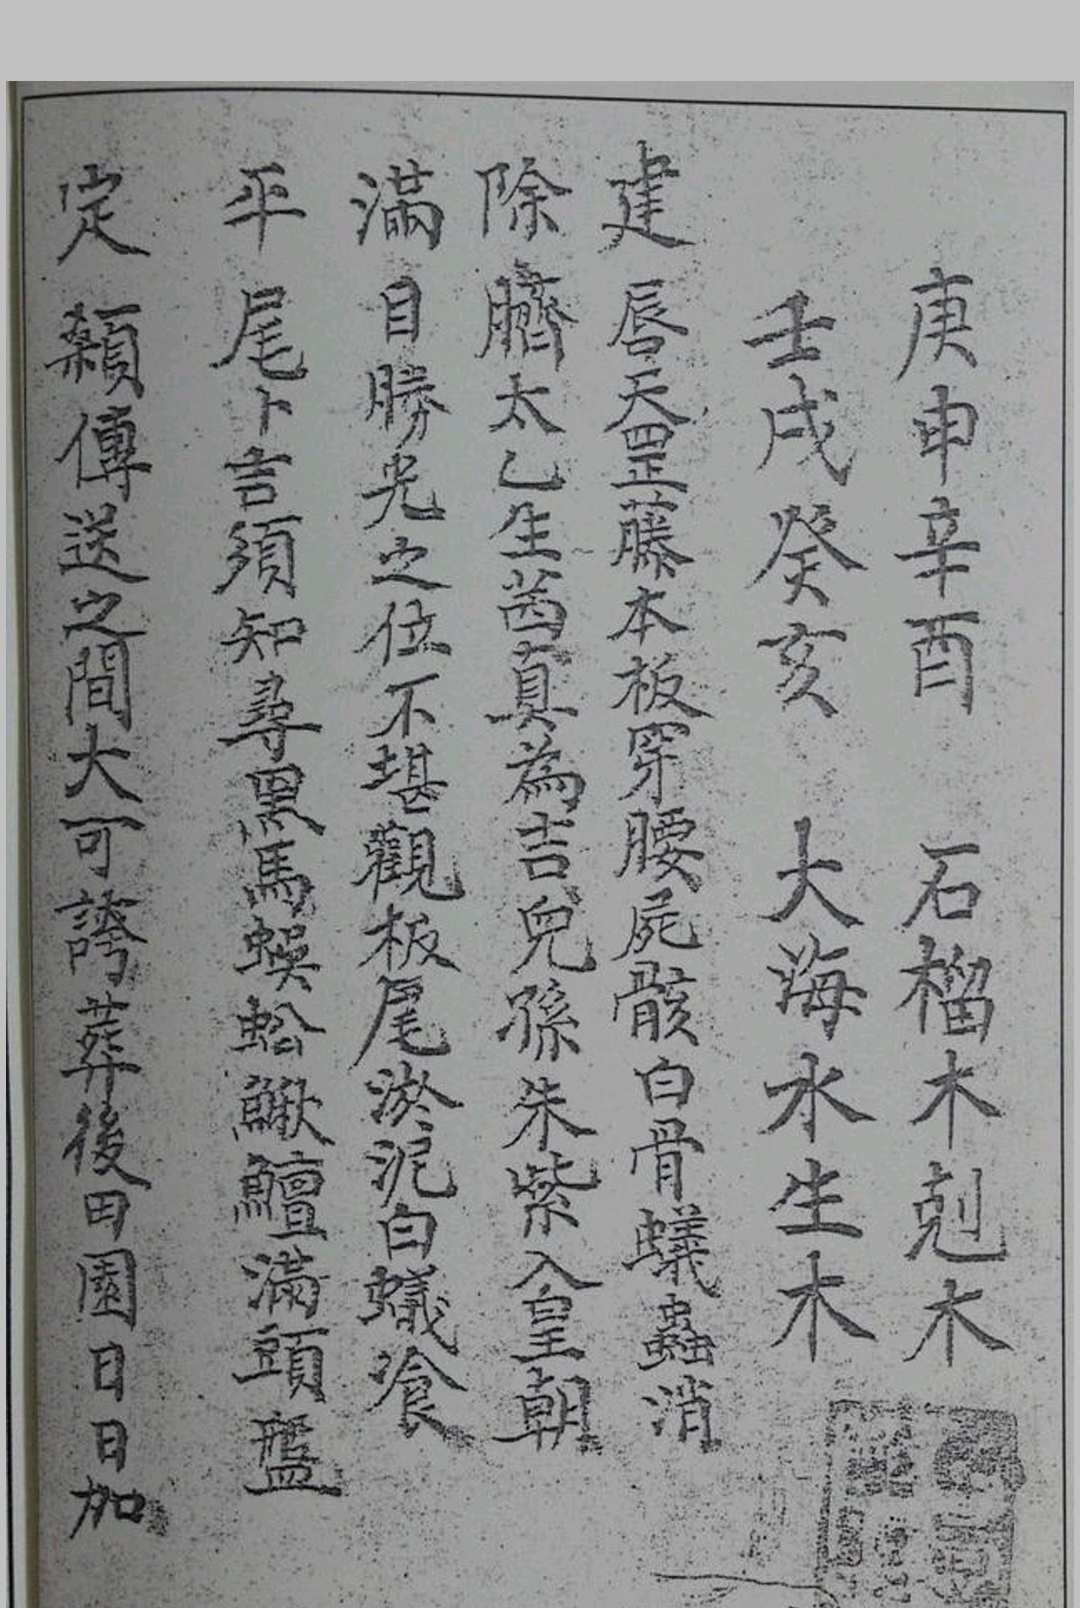 庚申辛酉 石榴木剋木
壬戌癸亥 大海水生木
建 唇天罡藤本板穿腰屍骸白骨蟻蟲消
除 臍太乙生茜真為吉兒孫朱紫入皇朝
滿 目勝光之位不堪觀板尾淤泥白蟻飡
平 尾卜言須知尋黑馬蜈蚣鰍鱣滿頭盤
定 顙傳送之間大可誇葬後田園日日加